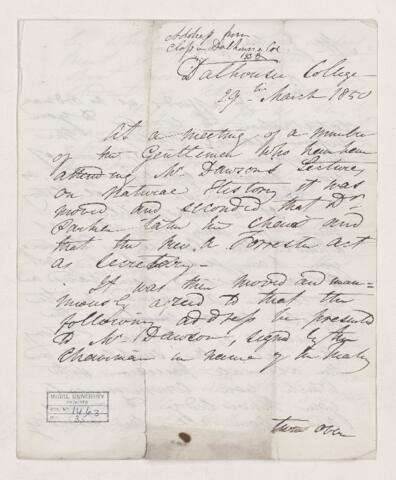 Address from
Class in Dalhousie Col
1850
Dalhousie College
29th March 1850
At a meeting of a number
of the Gentlemen who have been
attending Mr Dawsons Lectures
on Natural History it was
moved and seconded that Dr
Parker take the chair and
that the Rev. A Forrester act
as Secretary.
It was then moved and unan=
imously agreed to that the
following address be presented
to Mr Dawson, signed by the
Chairman in name of the
turn over
McGILL UNIVERSITY
ARCHIVES
ACC. NO. 1463